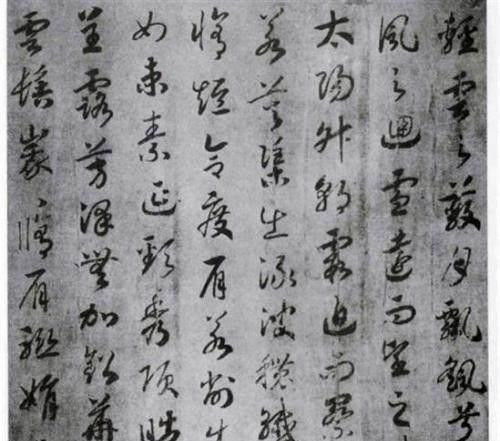 輕雲之蔽月飄颻兮
風之迴雪遠而望之
太陽升朝霞迫而察
若芙蕖出淥波穠纖
脩短合度肩若削成
如束素延頸秀項皓
呈露芳澤無加鉛華
雲髻峩〻脩眉聯娟